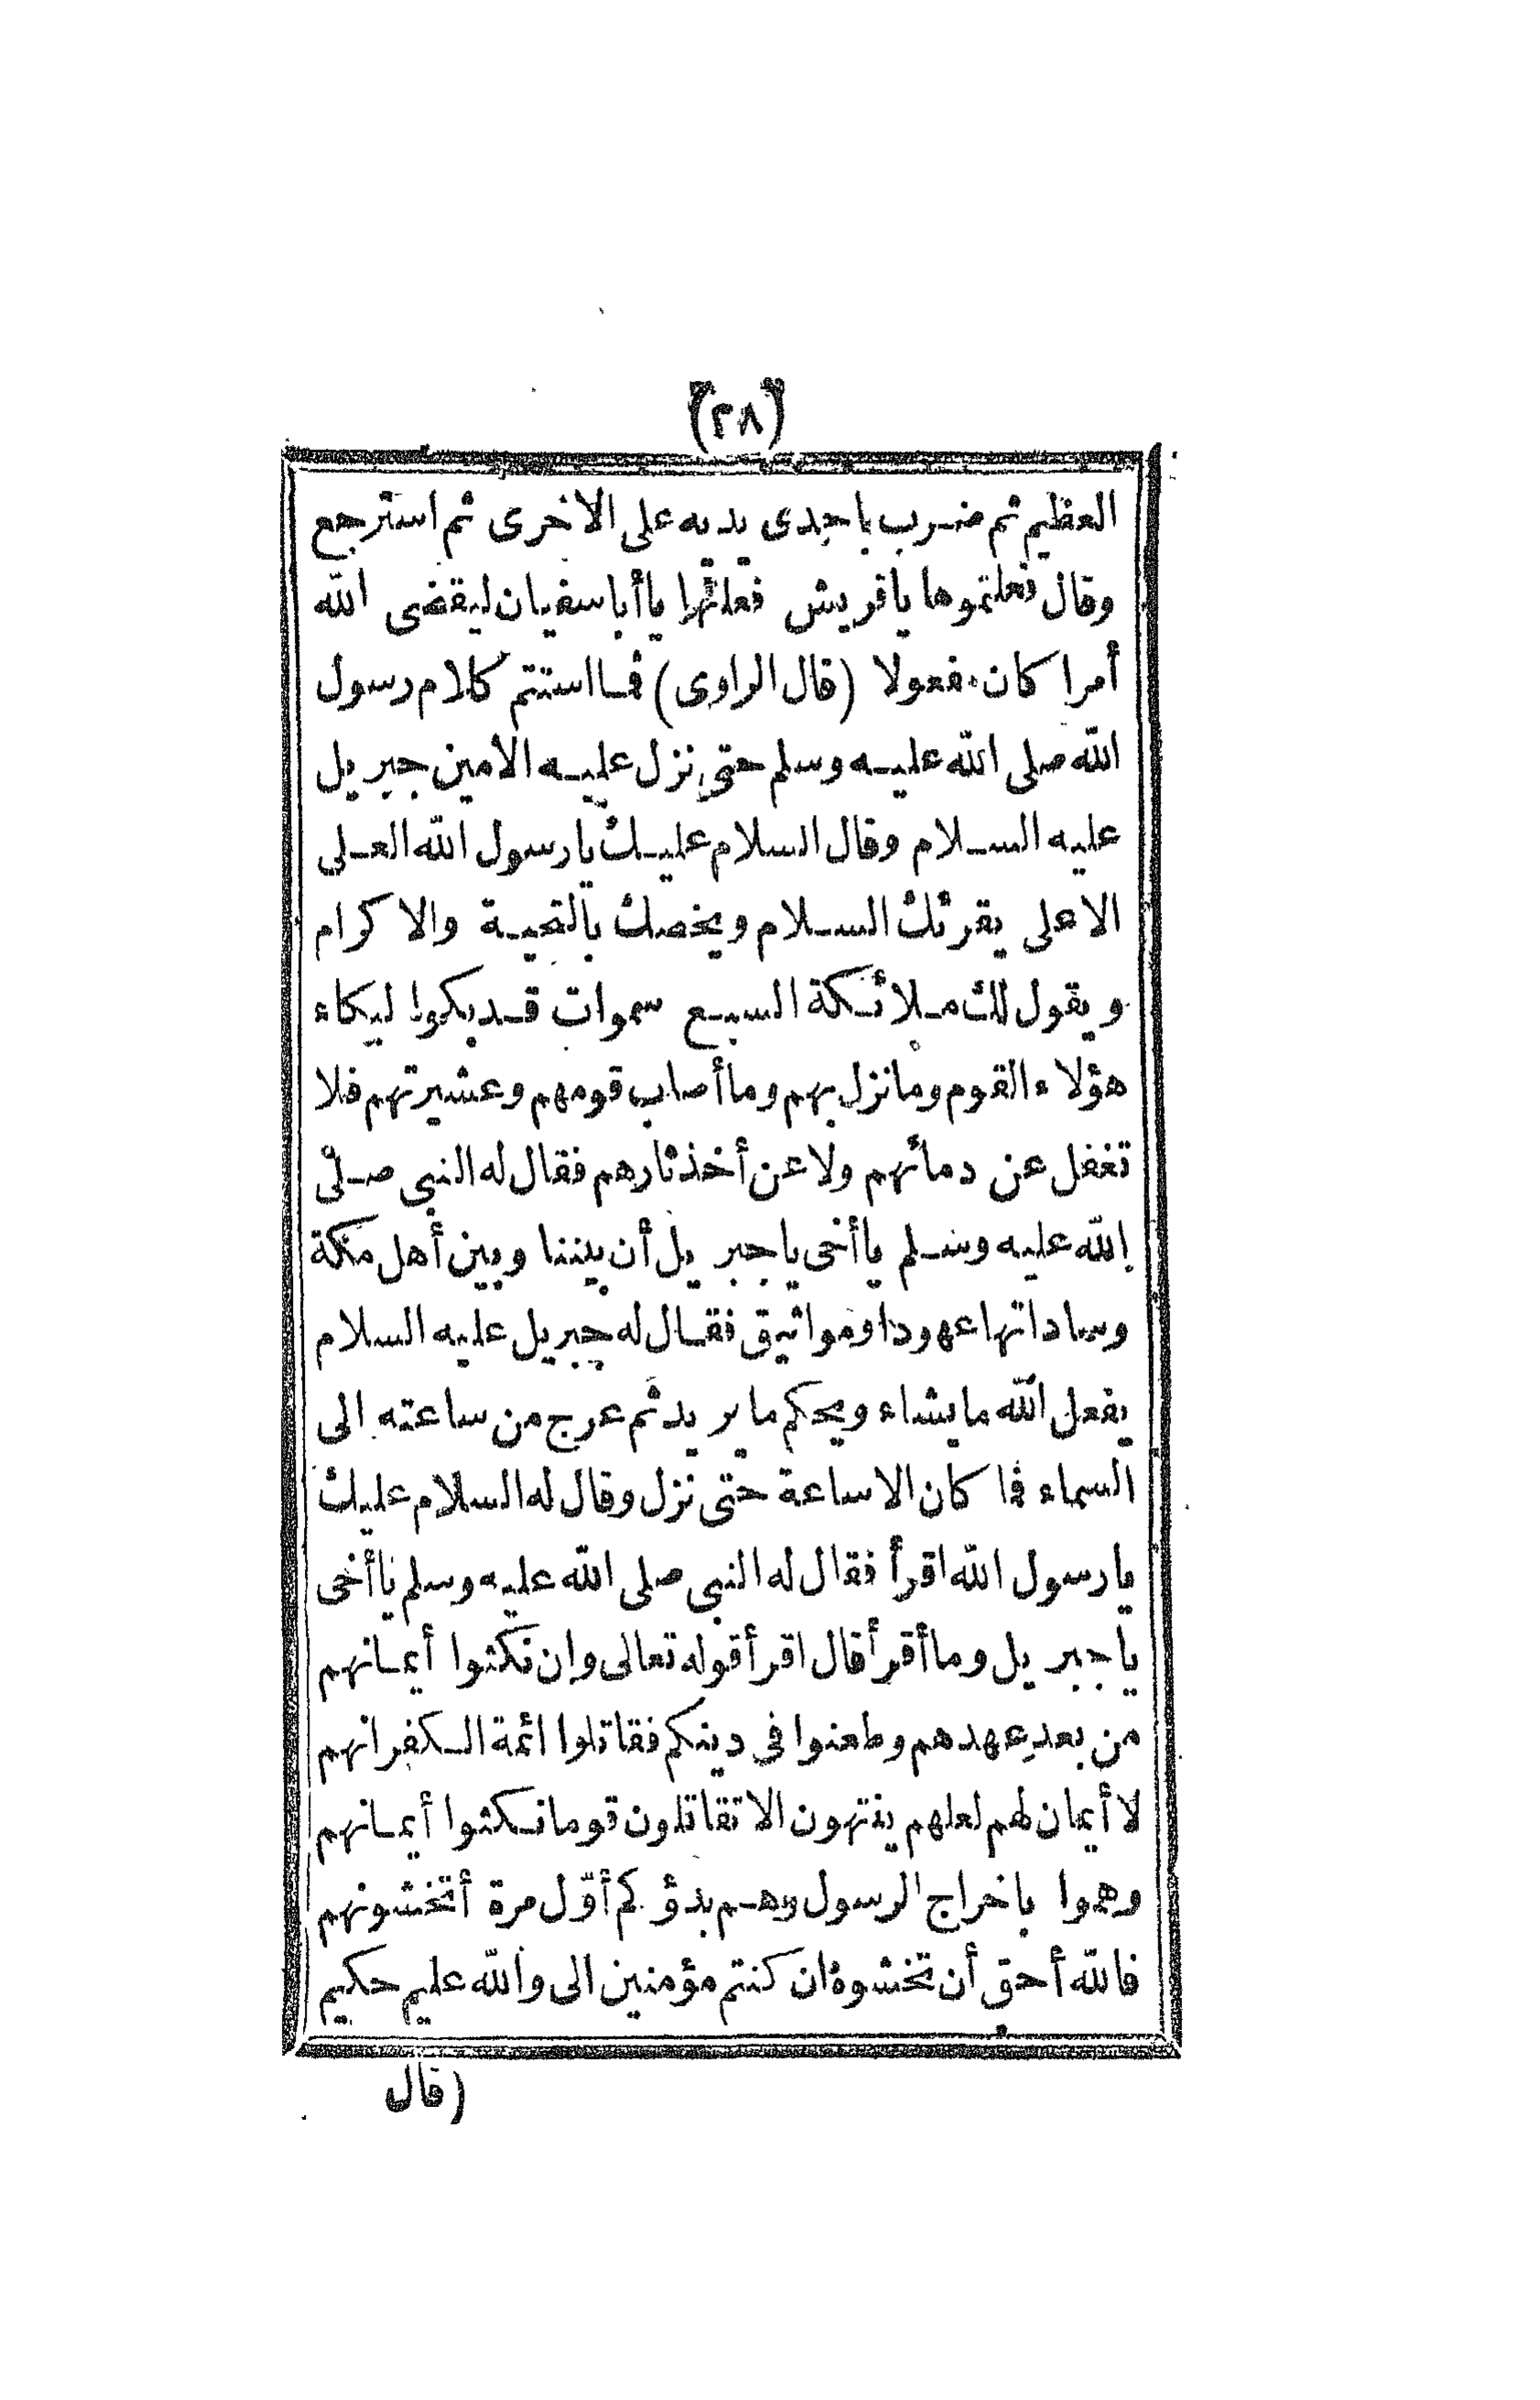 (٢٨)
العظيم ثم ضرب باحدى يديه على الاخرى ثم استرجع
وقال فعلتموها ياقريش فعلتها ياأباسفيان ليقضى الله
أمرا كان مفعولا (قال الراوى) فما استتم كلام رسول
الله صلى الله عليه وسلم حتى نزل عليه الامين جبريل
عليه السلام وقال السلام عليك يارسول الله العلى
الاعلى يقرئك السلام ويخصك بالتحية والاكرام
ويقول لك ملائكة السبع سموات قد بكوا لبكاء
هؤلاء القوم ومانزل بهم وماأصاب قومهم وعشيرتهم فلا
تغفل عن دمائهم ولاعن أخذ ثارهم فقال له النبى صلى
الله عليه وسلم ياأخى ياجبريل أن بيننا وبين أهل مكة
وساداتها عهودا ومواثيق فقال له جبريل عليه السلام
يفعل الله مايشاء ويحكم مايريد ثم عرج من ساعته الى
السماء فما كان الاساعة حتى نزل وقال له السلام عليك
يارسول الله اقرأ فقال له النبى صلى الله عليه وسلم ياأخى
ياجبريل وماأقرأ قال اقرأ قوله تعالى وان نكثوا أيمانهم
من بعد عهدهم وطعنوا فى دينكم فقاتلوا ائمة الكفر انهم
لاأيمان لهم لعلهم ينتهون الاتقاتلون قوما نكثوا أيمانهم
وهموا باخراج الرسول وهم بدؤكم أول مرة أتخشونهم
فالله أحق أن تخشوه ان كنتم مؤمنين الى والله عليم حكيم
(قال